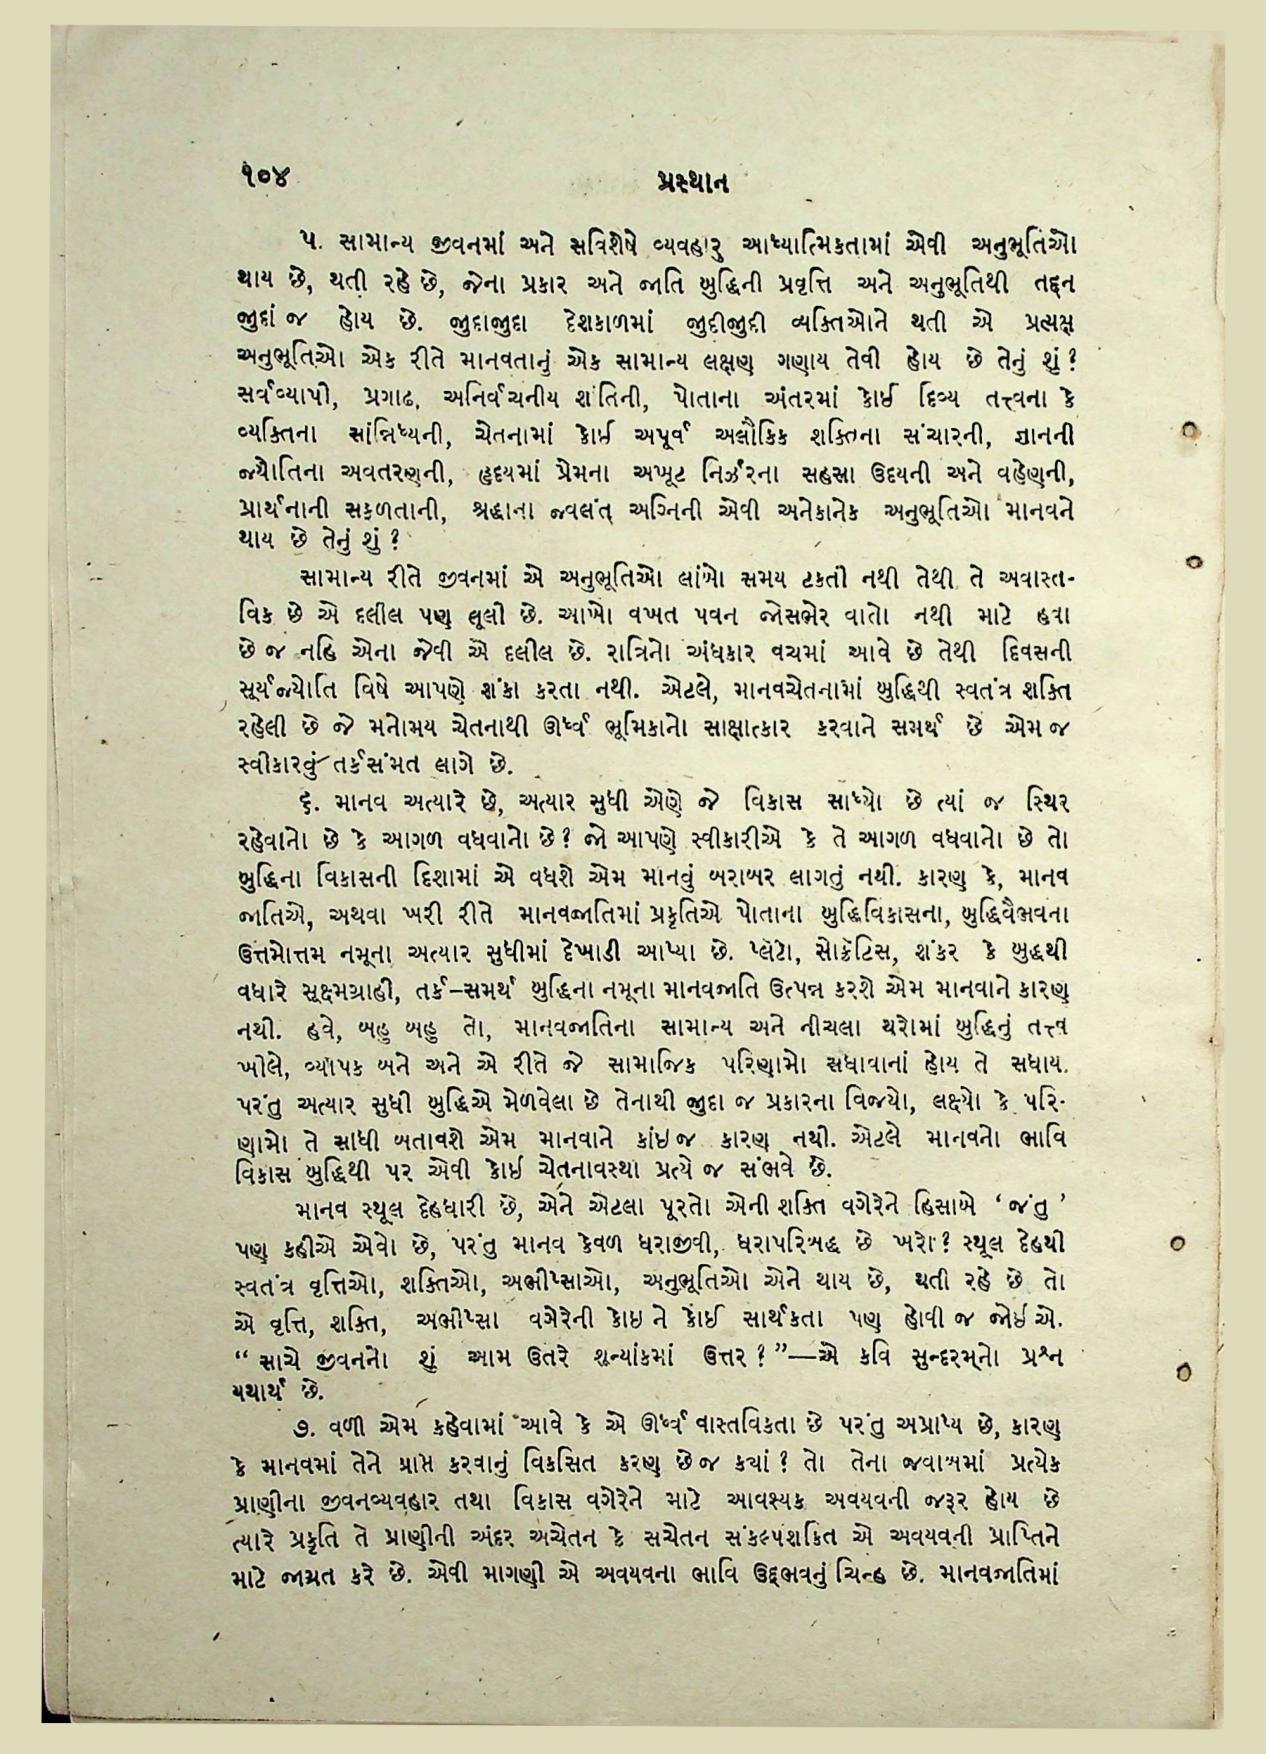 ૧૦૪
પ્રસ્થાન
૫. સામાન્ય જીવનમાં અને સવિશેષે વ્યવહારુ આધ્યાત્મિકતામાં એવી અનુભૂતિઓ
થાય છે, થતી રહે છે, જેના પ્રકાર અને જાતિ બુદ્ધિની પ્રવૃત્તિ અને અનુભૂતિથી તદ્દન
જુદાં જ હોય છે. જુદાજુદા દેશકાળમાં જુદીજુદી વ્યક્તિઓને થતી એ પ્રત્યક્ષ
અનુભૂતિઓ એક રીતે માનવતાનું એક સામાન્ય લક્ષણ ગણાય તેવી હોય છે તેનું શું?
સર્વવ્યાપી, પ્રગાઢ, અનિર્વચનીય શાંતિની, પોતાના અંતરમાં કોઈ દિવ્ય તત્ત્વના કે
વ્યક્તિના સાંન્નિધ્યની, ચેતનામાં કોઈ અપૂર્વ અલૌકિક શક્તિના સંચારની, જ્ઞાનની
જ્યોતિના અવતરણની, હૃદયમાં પ્રેમના અખૂટ નિર્ઝરના સહસા ઉદયની અને વહેણની,
પ્રાર્થનાની સફળતાની, શ્રદ્ધાના જ્વલંત્ અગ્નિની એવી અનેકાનેક અનુભૂતિઓ માનવને
થાય છે તેનું શું?
સામાન્ય રીતે જીવનમાં એ અનુભૂતિઓ લાંબો સમય ટકતી નથી તેથી તે અવાસ્ત-
વિક છે એ દલીલ પણ લૂલી છે. આખો વખત પવન જોસભેર વાતો નથી માટે હવા
છે જ નહિ એના જેવી એ દલીલ છે. રાત્રિનો અંધકાર વચમાં આવે છે તેથી દિવસની
સૂર્યજ્યોતિ વિષે આપણે શંકા કરતા નથી. એટલે, માનવચેતનામાં બુદ્ધિથી સ્વતંત્ર શક્તિ
રહેલી છે જે મનોમય ચેતનાથી ઊર્ધ્વ ભૂમિકાનો સાક્ષાત્કાર કરવાને સમર્થ છે એમ જ
સ્વીકારવું તર્કસંમત લાગે છે.
૬. માનવ અત્યારે છે, અત્યાર સુધી એણે જે વિકાસ સાધ્યો છે ત્યાં જ સ્થિર
રહેવાનો છે કે આગળ વધવાનો છે? જો આપણે સ્વીકારીએ કે તે આગળ વધવાનો છે તો
બુદ્ધિના વિકાસની દિશામાં એ વધશે એમ માનવું બરાબર લાગતું નથી. કારણ કે, માનવ
જાતિએ, અથવા ખરી રીતે માનવજાતિમાં પ્રકૃતિએ પોતાના બુદ્ધિવિકાસના, બુદ્ધિવૈભવના
ઉત્તમોત્તમ નમૂના અત્યાર સુધીમાં દેખાડી આપ્યા છે. પ્લેટો, સૉક્રૅટિસ, શંકર કે બુદ્ધથી
વધારે સૂક્ષ્મગ્રાહી, તર્ક-સમર્થ બુદ્ધિના નમૂના માનવજાતિ ઉત્પન્ન કરશે એમ માનવાને કારણ
નથી. હવે, બહુ બહુ તો, માનવજાતિના સામાન્ય અને નીચલા થરોમાં બુદ્ધિનું તત્ત્વ
ખીલે, વ્યાપક બને અને એ રીતે જે સામાજિક પરિણામો સધાવાનાં હોય તે સધાય.
પરંતુ અત્યાર સુધી બુદ્ધિએ મેળવેલા છે તેનાથી જુદા જ પ્રકારના વિજયો, લક્ષ્યો કે પરિ-
ણામો તે સાધી બતાવશે એમ માનવાને કાંઈજ કારણ નથી. એટલે માનવનો ભાવિ
વિકાસ બુદ્ધિથી પર એવી કોઈ ચેતનાવસ્થા પ્રત્યે જ સંભવે છે.
માનવ સ્થૂલ દેહધારી છે, એને એટલા પૂરતો એની શક્તિ વગેરેને હિસાબે ‘જંતુ’
પણ કહીએ એવો છે, પરંતુ માનવ કેવળ ધરાજીવી, ધરાપરિબદ્ધ છે ખરો? સ્થૂલ દેહથી
સ્વતંત્ર વૃત્તિઓ, શક્તિઓ, અભીપ્સાઓ, અનુભૂતિઓ એને થાય છે, થતી રહે છે તો
એ વૃત્તિ, શક્તિ, અભીપ્સા વગેરેની કોઈ ને કોઈ સાર્થકતા પણ હોવી જ જોઈએ.
“સાચે જીવનનો શું આમ ઉતરે શૂન્યાંકમાં ઉત્તર?”—એ કવિ સુન્દરમ્‌નો પ્રશ્ન
યથાર્થ છે.
૭. વળી એમ કહેવામાં આવે કે એ ઊર્ધ્વ વાસ્તવિકતા છે પરંતુ અપ્રાપ્ય છે, કારણ
કે માનવમાં તેને પ્રાપ્ત કરવાનું વિકસિત કરણ છેજ ક્યાં? તો તેના જવાબમાં પ્રત્યેક
પ્રાણીના જીવનવ્યવહાર તથા વિકાસ વગેરેને માટે આવશ્યક અવયવની જરૂર હોય છે
ત્યારે પ્રકૃતિ તે પ્રાણીની અંદર અચેતન કે સચેતન સંકલ્પશક્તિ એ અવયવની પ્રાપ્તિને
માટે જાગ્રત કરે છે. એવી માગણી એ અવયવના ભાવિ ઉદ્દભવનું ચિન્હ છે. માનવજાતિમાં